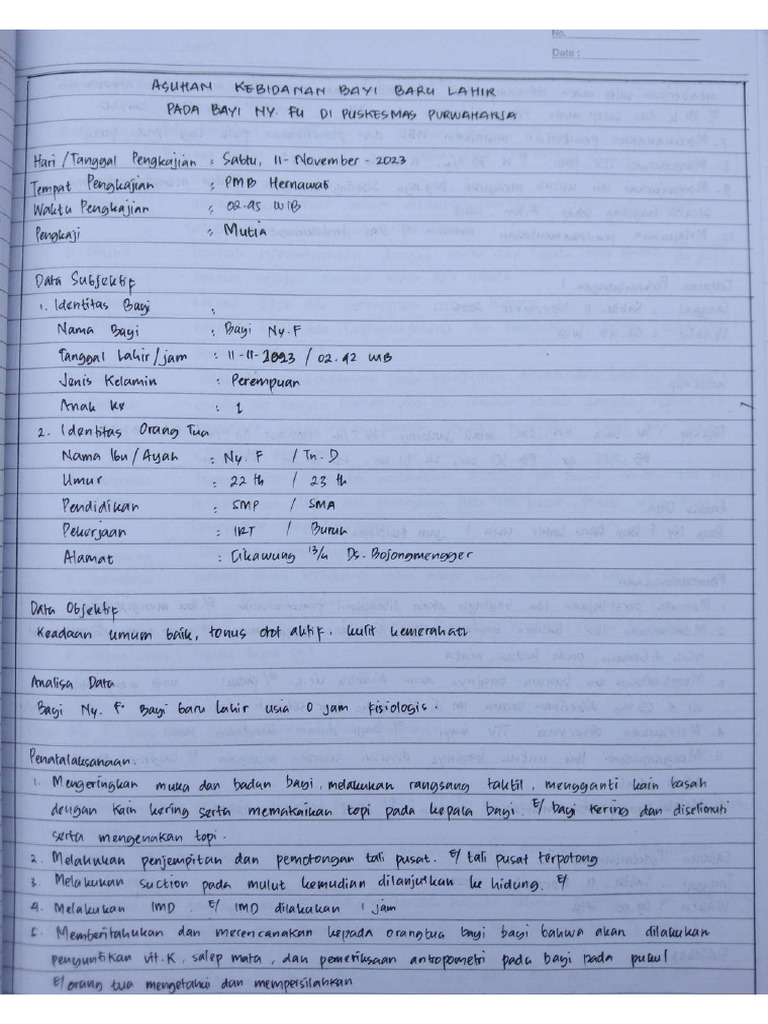 No.
Date :
ASUHAN KEBIDANAN BAYI BARU LAHIR
PADA BAYI NY. FU DI PUSKESMAS PURWAHARJA
Hari /Tanggal Pengkajian : Sabtu, 11- November - 2023
Tempat Pengkajian : PMB Hernawati
Waktu Pengkajian : 02.45 WIB
Pengkaji : Mutia
Data Subjektif
1. Identitas Bayi :
Nama Bayi : Bayi Ny. F
Tanggal Lahir/jam : 11-11-2023 / 02.42 WIB
Jenis Kelamin : Perempuan
Anak ke : 1
2. Identitas Orang Tua
Nama Ibu / Ayah : Ny. F / Tn. D
Umur : 22 th / 23 th
Pendidikan : SMP / SMA
Pekerjaan : IRT / Buruh
Alamat : Cikawung 13/4 Ds. Bojongmengger
Data Objektif
Keadaan umum baik, tonus otot aktif. kulit kemerahan
Analisa Data
Bayi Ny. F. Bayi baru lahir usia 0 jam fisiologis.
Penatalaksanaan.
1. Mengeringkan muka dan badan bayi, melakukan rangsang taktil, mengganti kain basah
dengan kain kering serta memakaikan topi pada kepala bayi. E/ bayi kering dan diselimuti
serta mengenakan topi.
2. Melakukan penjempitan dan pemotongan tali pusat. E/ tali pusat terpotong
3. Melakukan suction pada mulut kemudian dilanjutkan ke hidung. E/
4. Melakukan IMD. E/ IMD dilakukan 1 jam
5. Memberitahukan dan merencanakan kepada orangtua bayi bayi bahwa akan dilakukan
penyuntikan vit.K, salep mata, dan pemeriksaan antropometri pada bayi pada pukul
E/ orang tua mengetahui dan mempersilahkan